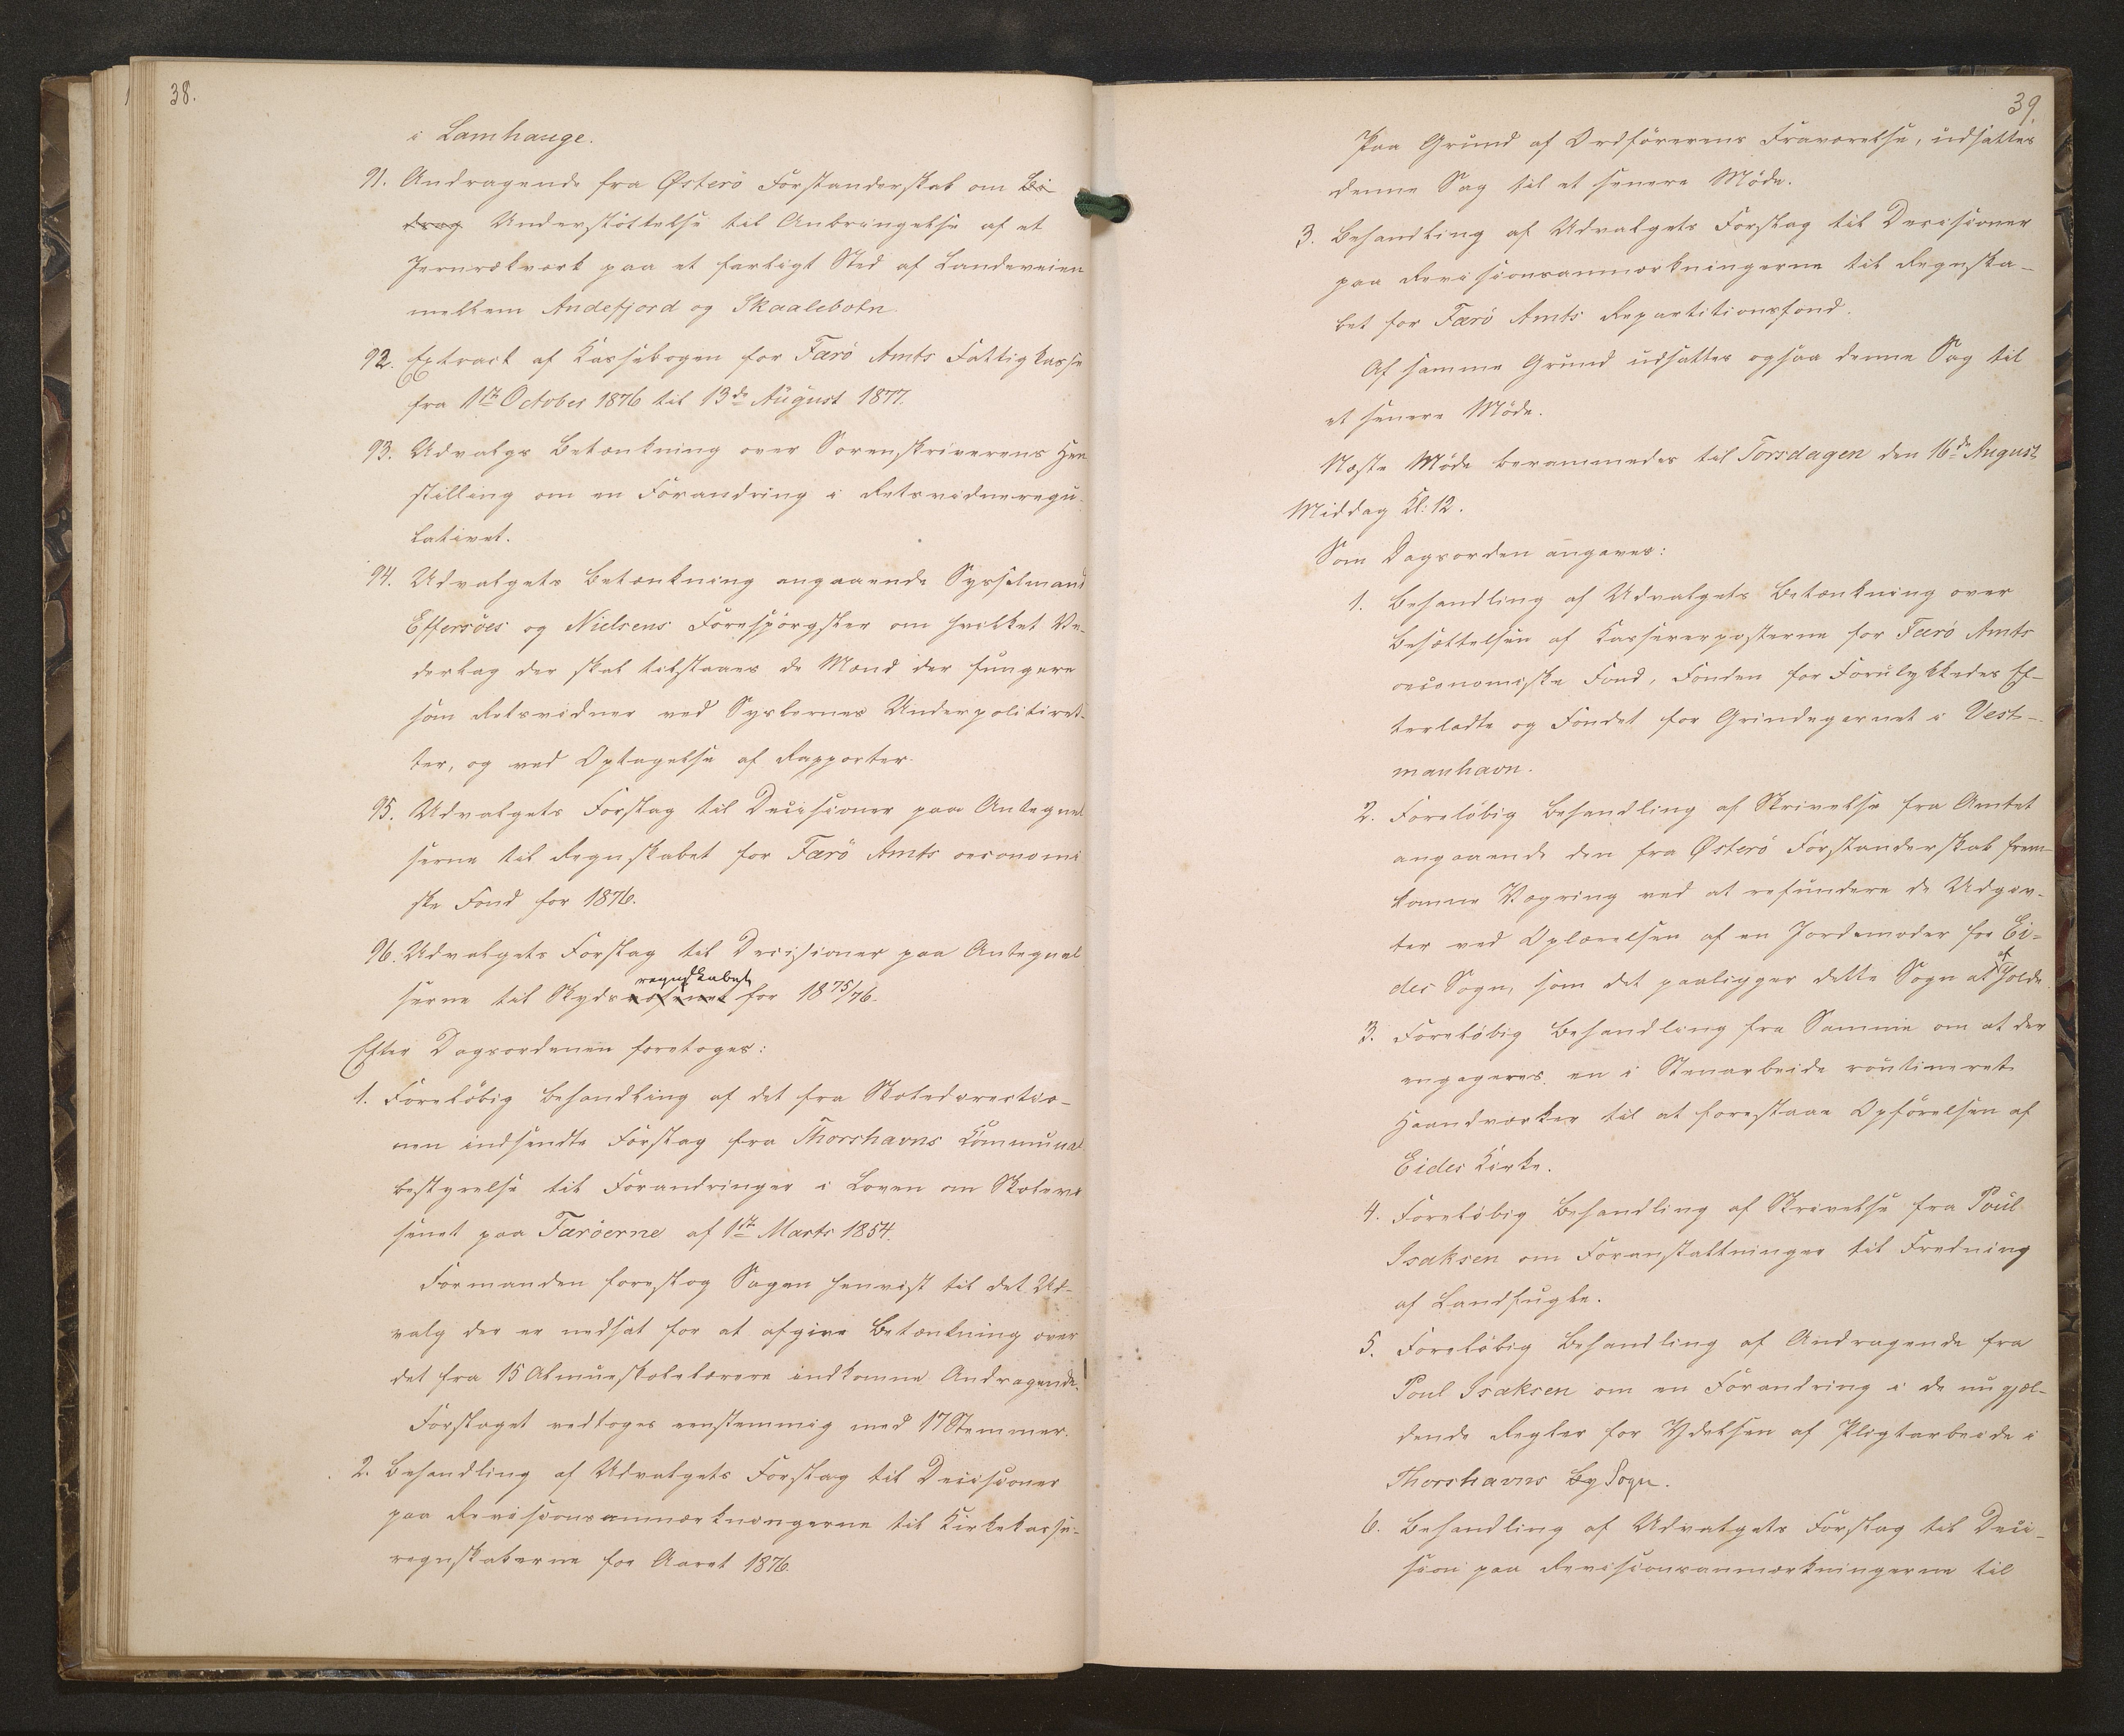 38.
i Lamhauge.
91. Andragende fra Østerö Forstanderskab om Bi-
drag Understöttelse til Anbringelse af et
Jernrækværk paa et farligt Sted af Landeveien
mellem Andefjord og Skaalebotn.
92. Extract af Kassebogen for Færö Amts Fattigkasse
fra 1ste October 1876 til 13de August 1877.
93. Udvalgs Betænkning over Sorenskriverens Hen
stilling om en Forandring i Retsvidneregu-
lativet.
94. Udvalgets Betænkning angaaende Sysselmænd
Effersöes og Nielsens Forespörgsler om hvilket Ve-
derlag der skal tilstaaes de Mænd der fungere
som Retsvidner ved Syslernes Underpolitiret-
ter, og ved Optagelse af Rapporter.
95. Udvalgets Forslag til Decisioner paa Antegnel
serne til Regnskabet for Færö Amts oeconomi
ske Fond for 1876.
96. Udvalgets Forslag til Decisioner paa Antegnel
regnskabet
serne til Skydsvæsenet for 1875/76.
Efter Dagsordenen foretoges:
1. Forelöbig Behandling af det fra Skoledirectio-
nen indsendte Forslag fra Thorshavns Kommunal
bestyrelse til Forandringer i Loven om Skolevæ
senet paa Færöerne af 1ste Marts 1854.
Formanden foreslog Sagen henvist til det Ud-
valg der er nedsat for at afgive Betænkning over
det fra 15 Almueskolelærere indkomne Andragende.
Forslaget vedtoges eenstemmig med 17 Stemmer.
2. Behandling af Udvalgets Forslag til Decisioner
paa Revisionsanmærkningerne til Kirkekasse-
regnskaberne for Aaret 1876.
39.
Paa Grund af Ordförerens Fraværelse, udsattes
denne Sag til et senere Möde.
3. Behandling af Udvalgets Forslag til Decisioner
paa Revisionsanmærkningerne til Regnska-
bet for Færö Amts Repartitionsfond.
Af samme Grund udsattes ogsaa denne Sag til
et senere Möde.
Næste Möde berammedes til Torsdagen den 16de August
Middag Kl: 12.
Som Dagsorden angaves:
1. Behandling af Udvalgets Betænkning over
Besættelsen af Kassererposterne for Færö Amts
oeconomiske Fond, Fonden for Forulykkedes Ef-
terladte og Fondet for Grindegarnet i Vest-
manhavn.
2. Forelöbig Behandling af Skrivelse fra Amtet
angaaende den fra Østerö Forstanderskab frem-
komne Vægring ved at refundere de Udgiv-
ter ved Oplærelsen af en Jordemoder for Ei-
af
des Sogn, som det paaligger dette Sogn at holde.
3. Forelöbig Behandling fra Samme om at der
engageres en i Stenarbeide routineret
Haandværker til at forestaae Opförelsen af
Eides Kirke.
4. Forelöbig Behandling af Skrivelse fra Poul
Isaksen om Foranstaltninger til Fredning
af Landfugle.
5. Forelöbig Behandling af Andragende fra
Poul Isaksen om en Forandring i de nugjæl-
dende Regler for Ydelsen af Pligtarbeide i
Thorshavns By Sogn.
6. Behandling af Udvalgets Forslag til Deci-
sion paa Revisionsanmærkningerne til